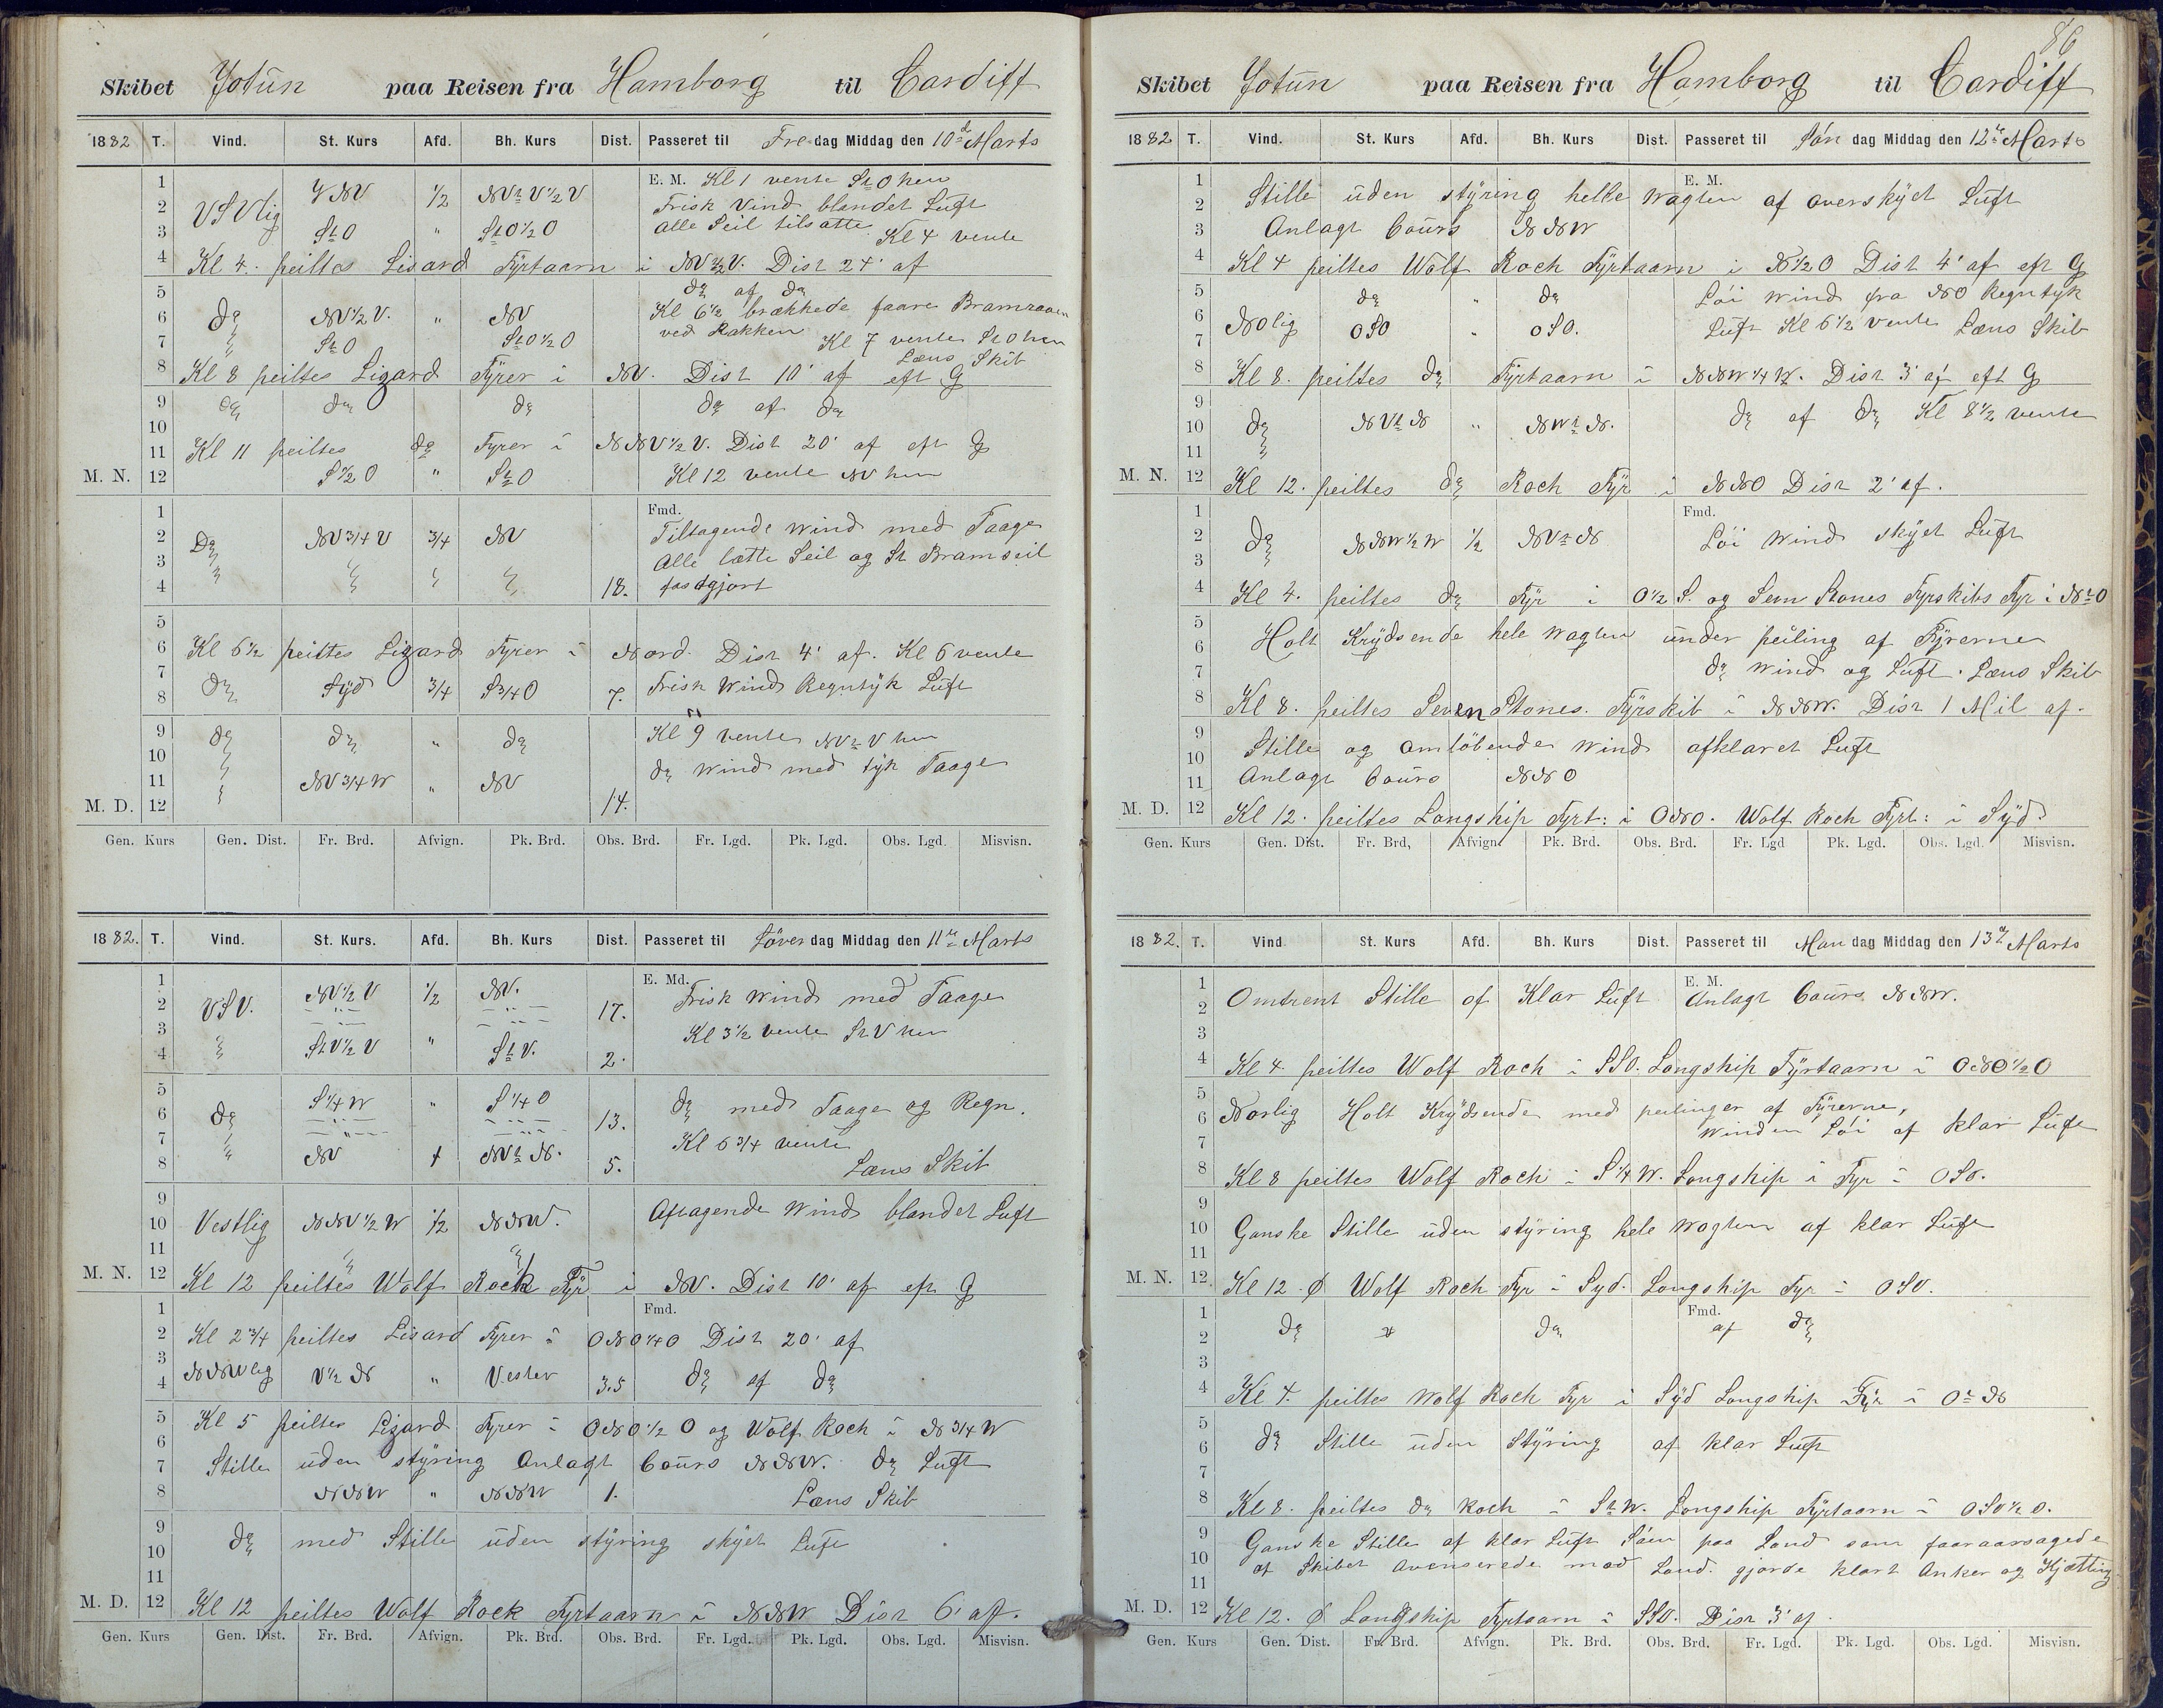 Skibet Jotün paa Reisen fra Hamborg til Cardiff
1882 T. Vind. St. Kurs Afd. Bh. Kurs Dist. Passeret til Fredag Middag den 10de Marts
1 E. M. Kl 1 vente StO hen
2 VSVlig VNV 1/2 NVtV1/2V Frisk Vind blandet Luft
3 StO " StO1/2O Alle Seil tilsatte Kl 4 vente
4 Kl 4. peiltes Lisard Fyrtaarn i NV1/2V. Dist 24' af
5 do af do
6 do NV1/2V. " NV Kl 6 1/2 brækkede faare Bramraaen
7 StO StO1/2O ved Rakken Kl 7 vente StO hen
Læns Skib
8 Kl 8 peiltes Lizard Fyrer i NV. Dist 10' af eft G
9 do do do do af do
10
11 Kl 11 peiltes do Fyrer i NNV1/2V. Dist 20' af eft G
M. N. 12 S1/2O " StO Kl 12 vente NV hen
1 Fmd.
2 Do NV3/4V 3/4 NV Tiltagende Wind med Taage
3 Alle lætte Seil og St Bramseil
4 18. fastgjort
5
6 Kl 6 1/2 peiltes Lizard Fyrer i Nord. Dist 4' af. Kl 6 vente
7
8 do Syd 3/4 S3/4O 7. Frisk Wind Regntyk Luft
9 do do " do Kl 9 vente NVtV hen
10 do Wind med tyk Taage
11 NV3/4W " NV
M. D. 12 14.
Gen. Kurs Gen. Dist. Fr. Brd. Afvign. Pk. Brd. Obs. Brd. Fr. Lgd. Pk. Lgd. Obs. Lgd. Misvisn.
1882. T. Vind. St. Kurs. Afd. Bh. Kurs Dist. Passeret til Löverdag Middag den 11te Marts
1 E. Md.
2 VSV. NV1/2V 1/2 NV. 17. Frisk Wind med Taage
3 Kl 3 1/2 vente StV hen
4 StV1/2V " StV. 2.
5
6 do S1/4W " S1/4O 13. do med Taage og Regn.
7 Kl 6 3/4 vente
8 NV 1 NVtN. 5. Læns Skib
9
10 Vestlig NNV1/2W 1/2 NNW. Aftagende Wind blandet Luft
11
M. N. 12 Kl 12 peiltes Wolf Rock Fÿr i NV. Dist 10' af eft G
1 Fmd.
2 Kl 2 3/4 peiltes Lisard Fyrer i ONO1/4O Dist 20' af
3
4 NNWlig V1/2N " Vester 3.5 do af do
5 Kl 5 peiltes Lizard Fyrer i ONO1/2O og Wolf Rock i N3/4W
6
7 Stille üden stÿring Anlagt Coürs NNW. do Luft
8 NNW " NNW 1. Læns Skib
9
10 do med Stille üden stÿring skÿet Luft
11
M. D. 12 Kl 12 peiltes Wolf Rock Fyrtaarn i NNW Dist 6' af.
Gen. Kurs Gen. Dist. Fr. Brd. Afvign. Pk. Brd. Obs. Brd. Fr. Lgd. Pk. Lgd. Obs. Lgd. Misvisn.
86
Skibet Jotün paa Reisen fra Hamborg til Cardiff
1882 T. Vind. St. Kurs Afd. Bh. Kurs Dist. Passeret til Søndag Middag den 12te Marts
1 E. M.
2 Stille üden stÿring helle Wagten af overskÿet Luft
3 Anlagt Coürs NNW
4 Kl 4 peiltes Wolf Roch Fÿrtaarn i N1/2O Dist 4' af eft G
5 do " do Löi Wind fra NO Regntyk
6 NOlig OSO " OSO. Luft Kl 6 1/2 vente Læns Skib
7
8 Kl 8. peiltes do Fyrtaarn i NNW1/4W. Dist 3' af eft G
9
10 do NVtN " NWtN. do af do Kl 8 1/2 vente
11
M. N. 12 Kl 12. peiltes do Roch Fÿr i NNO Dist 2' af.
1 Fmd.
2 do NNW1/2W 1/2 NVtN Löi Wind skÿet Luft
3
4 Kl 4. peiltes do Fÿr i O1/2S. og Sevn Stones Fyrskibs Fyr i NtO
5
6 Holt Krÿdsende hele Wagten ünder peiling af Fÿrerne
7 do Wind og Luft. Læns Skib
8 Kl 8. peiltes Seven Stones. Fÿrskib i NNW. Dist 1 Mil af.
9
10 Stille og omlöbende Wind afklaret Luft
11 Anlagt Coürs NNO
M. D. 12 Kl 12. peiltes Longship Fyrt: i ONO. Wolf Roch Fyrt: i Sÿd.
Gen. Kurs Gen. Dist. Fr. Brd, Afvign. Pk. Brd. Obs. Brd. Fr. Lgd Pk. Lgd. Obs. Lgd. Misvisn.
1882. T. Vind St. Kurs Afd. Bh. Kurs Dist. Passeret til Mandag Middag den 13de Marts
1 E. M.
2 Omtrent Stille af Klar Luft Anlagt Coürs NNW.
3
4 Kl 4. peiltes Wolf Roch i SSO. Longship Fÿrtaarn i ONO1/2O
5
6 Norlig Holt Krÿdsende med peilinger af Fÿrerne,
7 Winden Löi af klar Luft
8 Kl 8 peiltes Wolf Roch i S1/4W. Longship i Fyr i OSO.
9
10 Ganske Stille üden stÿring hele Wagten af klar Luft
11
M. N. 12. Kl 12. Ø Wolf Roch Fyr i Syd. Longship Fyr i OSO.
1 Fmd.
2 do do af do
3
4 Kl 4. peiltes Wolf Roch Fyr i Sÿd Longship Fÿr i OtN
5
6 do Stille üden Stÿring af klar Luft
7
8 Kl 8. peiltes do Roch i StW. Longship Fÿrtaarn i OSO1/2O.
9 Ganske Stille af klar Luft Söen paa Land som faaraarsagede
10 at Skibet Avenserede mod Land. gjorde klart Anker og Kjætting
11
M. D. 12 Kl 12. Ø Longship Fyrtaarn i SSO. Dist 3' af.
Gen. Kurs Gen. Dist. Fr. Brd. Afvign. Pk. Brd. Obs. Brd. Fr. Lgd. Pk. Lgd. Obs. Lgd. Misvisn.